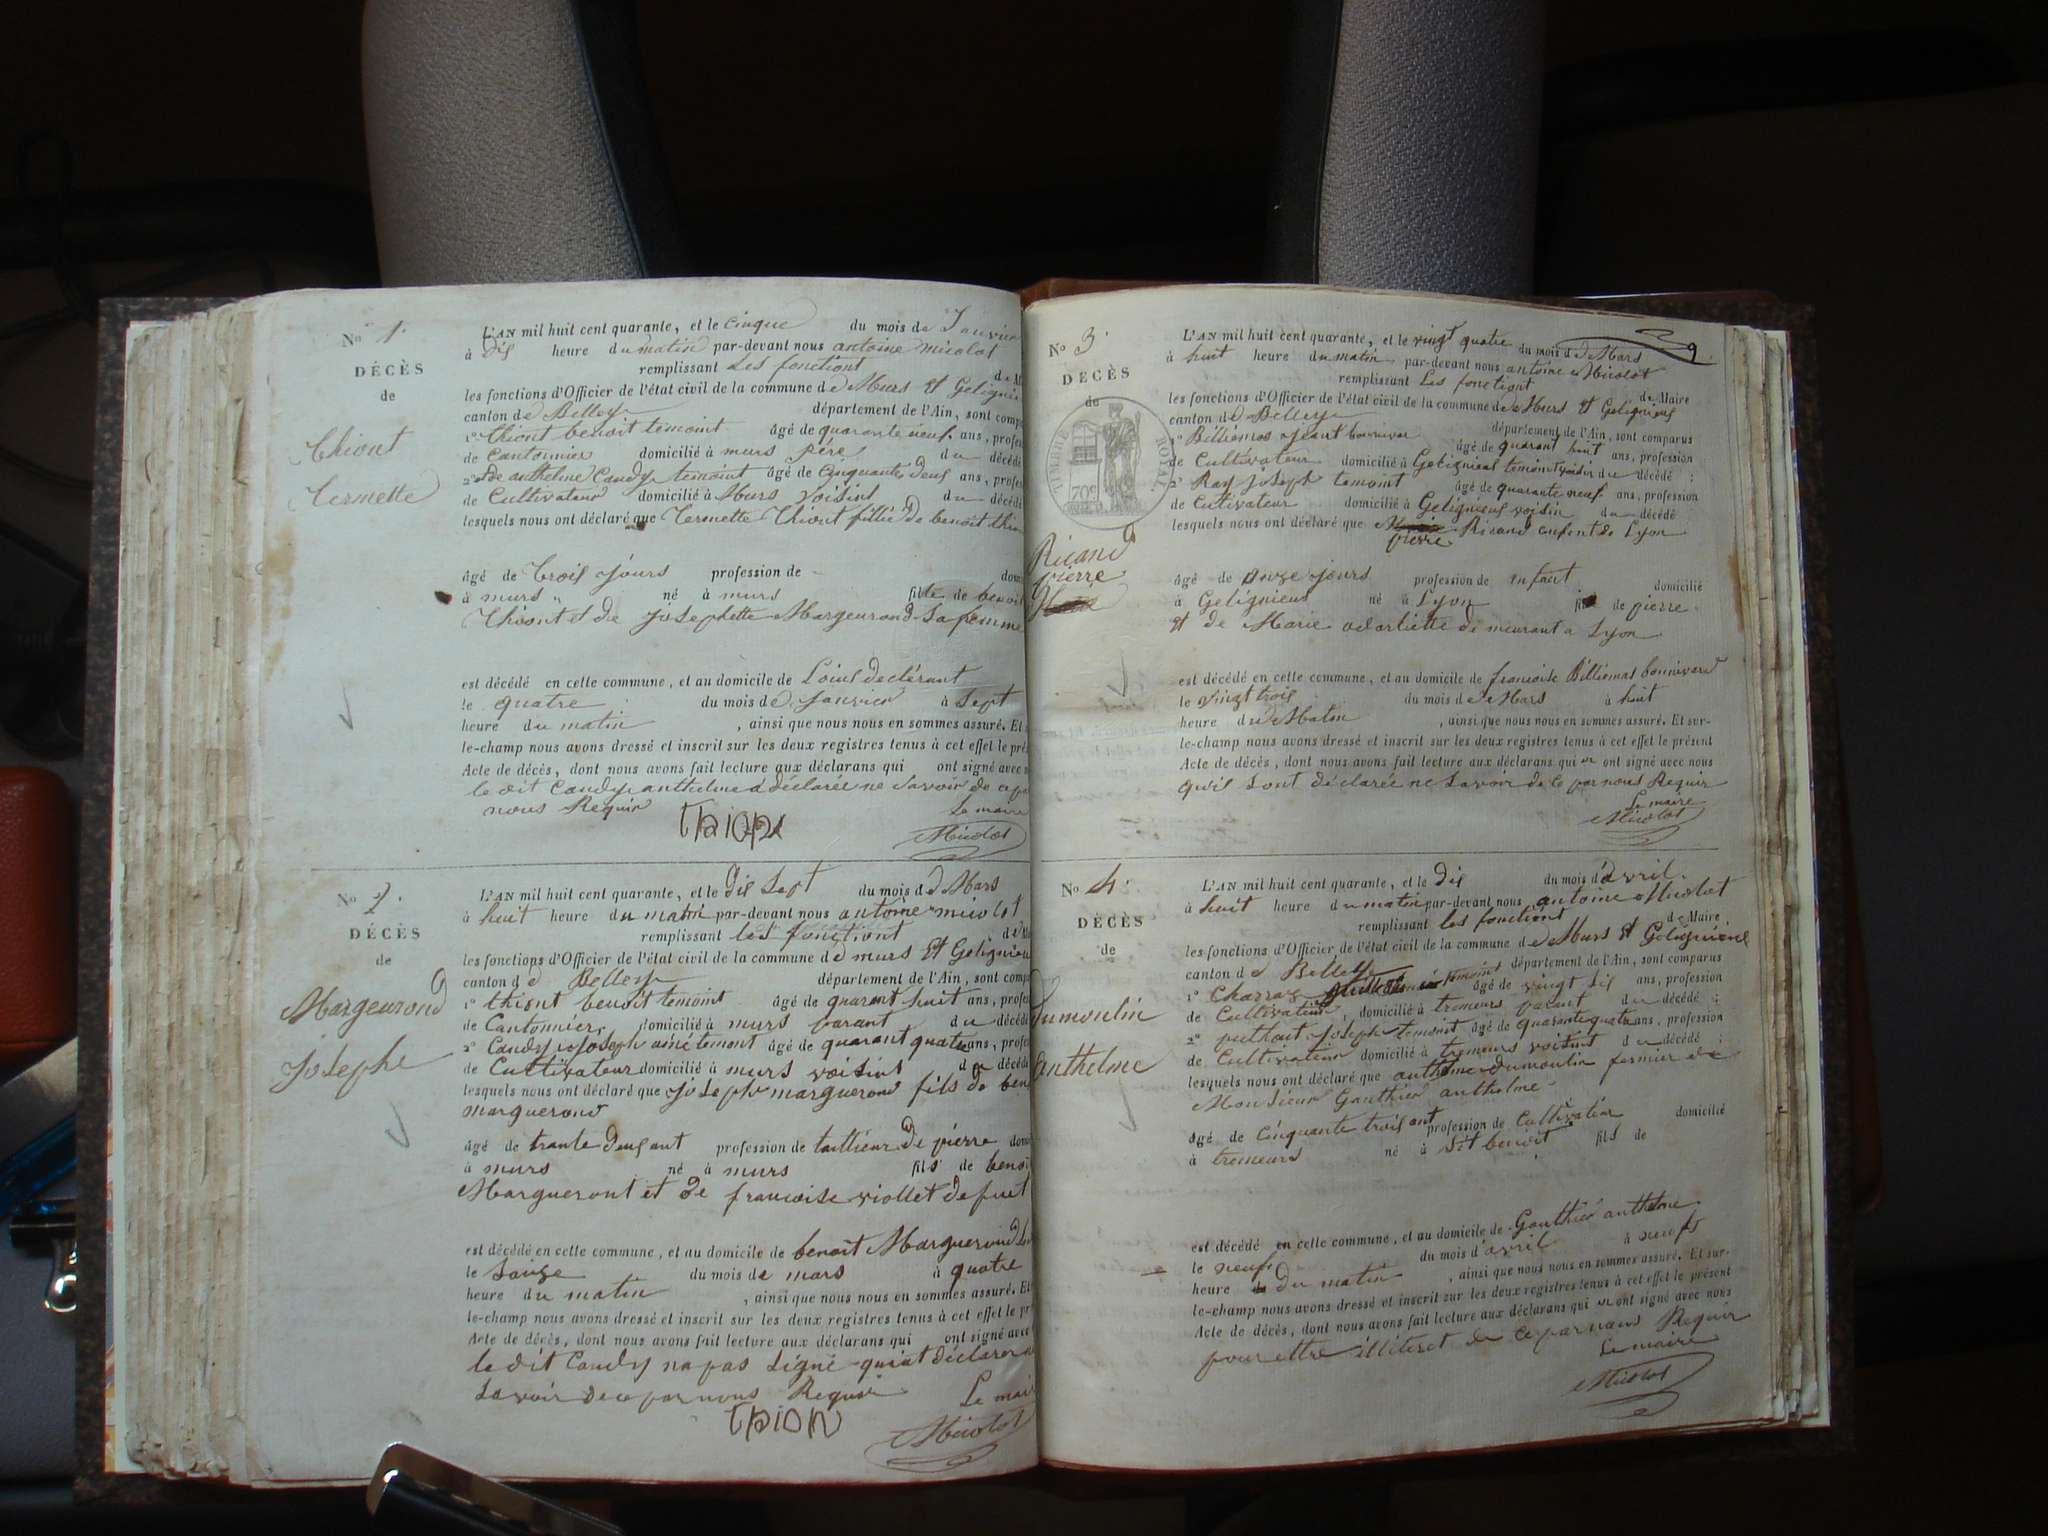 No 1.
DÉCÈS
de
Thiont
Termette
L'AN mil huit cent quarante, et le cinque du mois de Janvier
à dis heure du matin par-devant nous antoine micolot
remplissant les fonctiont
les fonctions d'Officier de l'état civil de la commune de Murs et
canton de Belley département de l'Ain, sont comp
1° thiont benoit temoint âgé de quarante neuf ans, profes
de Cantonnier domicilié à murs père du décédé
2° de anthelme Candy temoint âgé de cinquante deus ans, profes
de Cultivateur domicilié à Murs voisint du décédé
lesquels nous ont déclaré que Termette Thiont fillie de benoit thion
âgé de trois jours profession de
à murs né à murs fille de benoit
Thiont et de josephette Margeurond sa femme
est décédé en cette commune, et au domicile de
le quatre du mois de janvier à sept
heure du matin , ainsi que nous nous en sommes assuré. Et
le-champ nous avons dressé et inscrit sur les deux registres tenus à cet effet le pré
Acte de décès, dont nous avons fait lecture aux déclarans qui ont signé avec
le dit Candy anthelme a déclarée ne savoir de ce pa
nous Requir
Le maire
Micolot
No 2.
DÉCÈS
de
Margeurond
Josephe
L'AN mil huit cent quarante, et le dis sept du mois de Mars
à huit heure du matin par-devant nous antoine micolot
remplissant les fonctiont
les fonctions d'Officier de l'état civil de la commune de murs et Gelignieu
canton de Belley département de l'Ain, sont comp
1° thiont benoit temoint âgé de quarant huit ans, profes
de Cantonnier domicilié à murs parant du décédé
2° Candy Joseph ainé temont âgé de quarant quatre ans, profes
de Cultivateur domicilié à murs voisint du décédé
lesquels nous ont déclaré que joseph marguerond fils de ben
marguerond
âgé de trante deus ant profession de taillieur de pierre domi
à murs né à murs fils de benoi
Margueront et de francoise viollet defuet
est décédé en cette commune, et au domicile de benoit Marguerond
le du mois de mars à quatre
heure du matin , ainsi que nous nous en sommes assuré. Et
le-champ nous avons dressé et inscrit sur les deux registres tenus à cet effet le pr
Acte de décès, dont nous avons fait lecture aux déclarans qui ont signé avec
le dit Candy na pas signé qui at déclarer
savoir de ce par nous Requir
Le mair
Micolot
9.
No 3.
DÉCÈS
de
TIMBRE ROYAL
70c
Ricand
pierre
L'AN mil huit cent quarante, et le vingt quatre du mois de Mars
à huit heure du matin par-devant nous antoine Micolot
remplissant les fonctiont de Maire
les fonctions d'Officier de l'état civil de la commune de Murs et Gelignieus
canton de Belley département de l'Ain, sont comparus
1° Billiemas jeant bonnivar âgé de quarant huit ans, profession
de Cultivateur domicilié à Gelignieus temoint voisin du décédé ;
2° Ray joseph temoint âgé de quarante neuf ans, profession
de Cutivateur domicilié à Gelignieus voisin du décédé
lesquels nous ont déclaré que pierre Ricand enfent de Lyon
âgé de onze jours profession de enfant domicilié
à Gelignieus né à Lyon fils de pierre
et de Marie de meurant a Lyon
est décédé en cette commune, et au domicile de francoise Billiemas bonnivard
le vingt trois du mois de Mars à huit
heure du Matin , ainsi que nous nous en sommes assuré. Et sur-
le-champ nous avons dressé et inscrit sur les deux registres tenus à cet effet le présent
Acte de décès, dont nous avons fait lecture aux déclarans qui ne ont signé avec nous
qu'il sont déclarée ne savoir de ce par nous Requir
Le maire
Micolot
No 4.
DÉCÈS
de
Dumoulin
anthelme
L'AN mil huit cent quarante, et le dis du mois d'avril.
à huit heure du matin par-devant nous antoine Micolot
remplissant les fonctiont de Maire
les fonctions d'Officier de l'état civil de la commune de Murs et
canton de Belley département de l'Ain, sont comparus
1° Charraz temoint âgé de vingt sis ans, profession
de Cultivateur, domicilié à tremeurs parant du décédé ;
2° puthout Joseph temoint âgé de quarante quatre ans, profession
de Cultivateur domicilié à tremeurs voisint du décédé :
lesquels nous ont déclaré que anthelme Dumoulin fermier de
Monsieur Gauthier anthelme
âgé de cinquante trois ant profession de Cultivateur domicilié
à tremeurs né à St benoit fils de
est décédé en cette commune, et au domicile de Gauthier anthelme
le neuf du mois d'avril à neuf
heure du matin , ainsi que nous nous en sommes assuré. Et sur-
le-champ nous avons dressé et inscrit sur les deux registres tenus à cet effet le présent
Acte de décès, dont nous avons fait lecture aux déclarans qui ne ont signé avec nous
pour ettre illiteret de ce par nous Requir
Le maire
Micolot